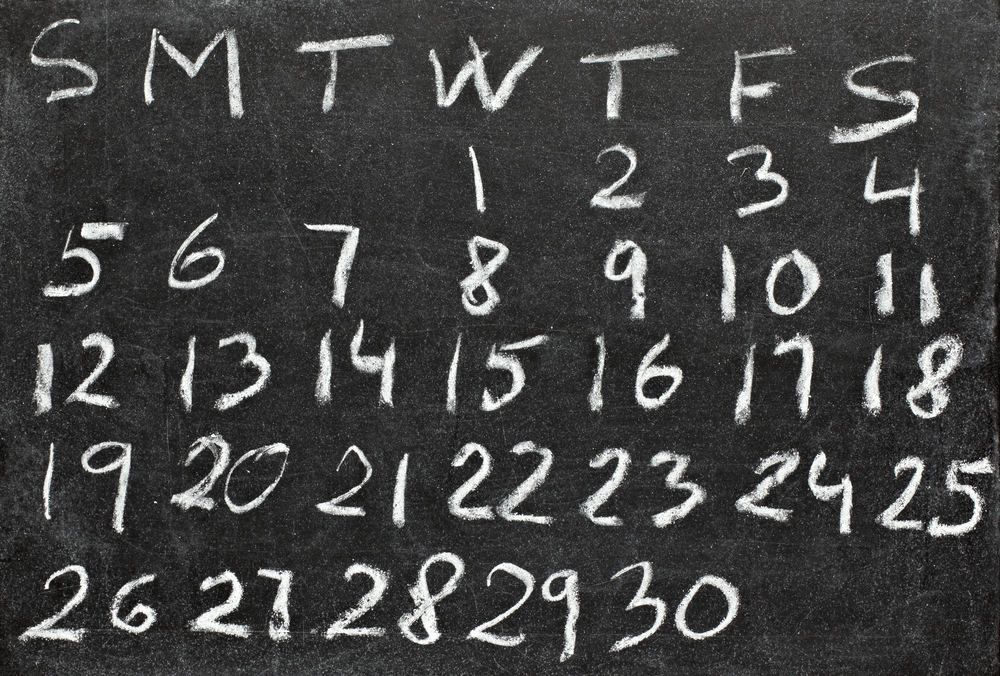 S M T W T F S
1 2 3 4
5 6 7 8 9 10 11
12 13 14 15 16 17 18
19 20 21 22 23 24 25
26 27 28 29 30